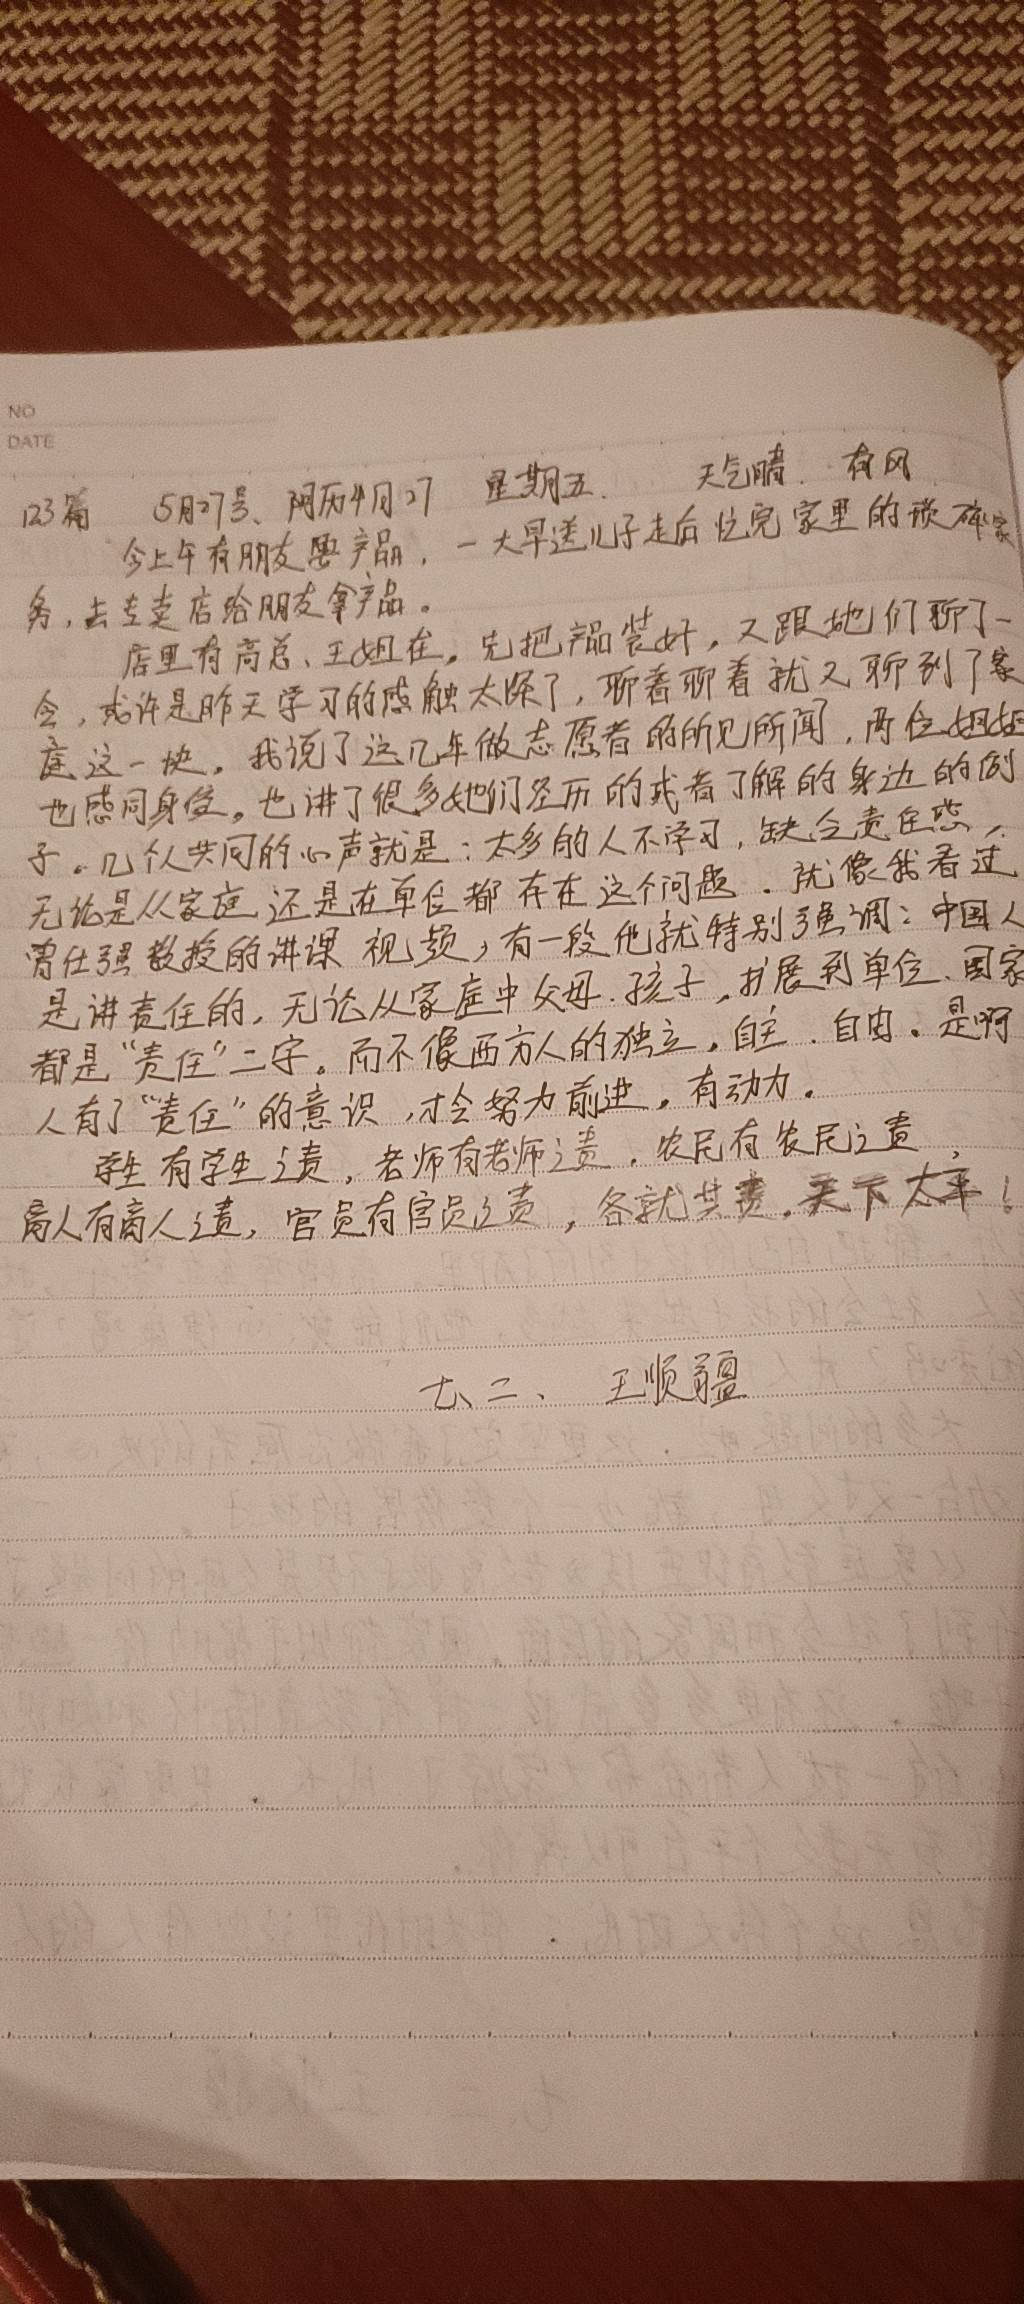 NO
DATE
123篇 5月27号、阴历4月27 星期五. 天气晴. 有风
今上午有朋友要产品，一大早送儿子走后忙完家里的琐碎家
务，去专卖店给朋友拿产品。
店里有高总、王姐在，先把产品装好，又跟她们聊了一
会，或许是昨天学习的感触太深了，聊着聊着就又聊到了家
庭这一块。我说了这几年做志愿者的所见所闻，两位姐姐
也感同身受。也讲了很多她们经历的或者了解的身边的例
子。几个人共同的心声就是：太多的人不学习，缺乏责任感，
无论是从家庭还是在单位都存在这个问题．就像我看过
曾仕强教授的讲课视频，有一段他就特别强调：中国人
是讲责任的，无论从家庭中父母．孩子，扩展到单位、国家
都是“责任”二字。而不像西方人的独立．自主．自由。是啊
人有了“责任”的意识，才会努力前进，有动力。
学生有学生之责，老师有老师之责．农民有农民之责，
商人有商人之责，官员有官员之责，各就共责，天下太平！
七、二、 王顺疆